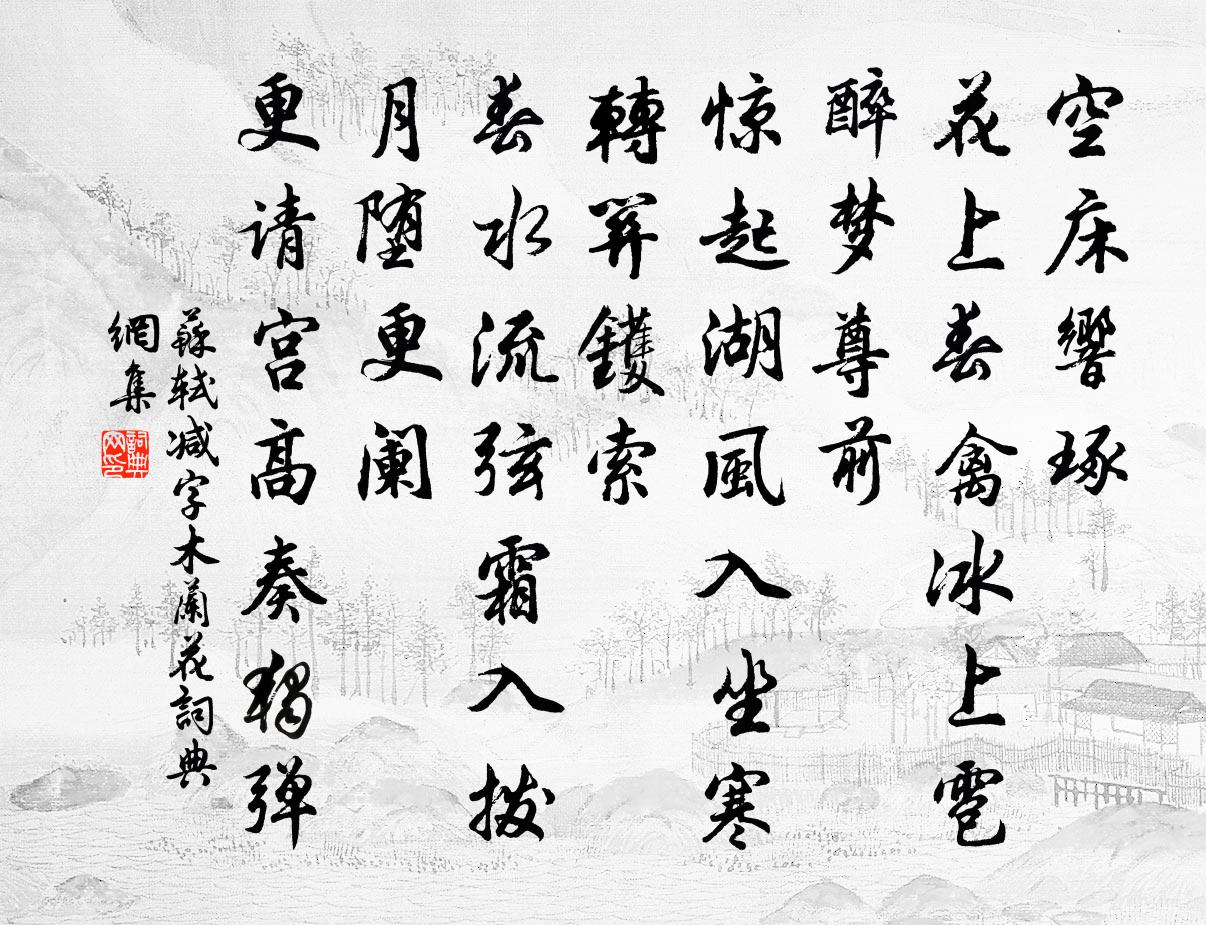 空床響琢
花上春禽冰上雹
醉梦尊前
惊起湖風入坐寒
轉関鑊索
春水流弦霜入拨
月堕更阑
更请宫高奏獨弹
蘇軾减字木蘭花詞典
網集
詞典网印